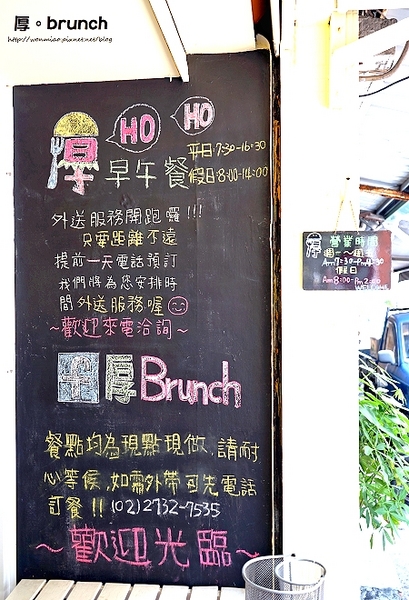 厚。brunch
http://wonmiao.pixnet.net/blog
HO
HO
厚
早午餐
平日:7:30-16:30
假日:8:00-14:00
外送服務開跑囉!!!
只要距離不遠
提前一天電話預訂
我們將為您安排時
間外送服務喔
~歡迎來電洽詢~
厚Brunch
餐點均為現點現做,請耐
心等候,如需外帶可先電話
訂餐!! (02)2732-7535
~歡迎光臨~
營業時間
週一~週五
Am7:30-Pm4:30
假日
Am8:00-Pm2:00
WELCOME